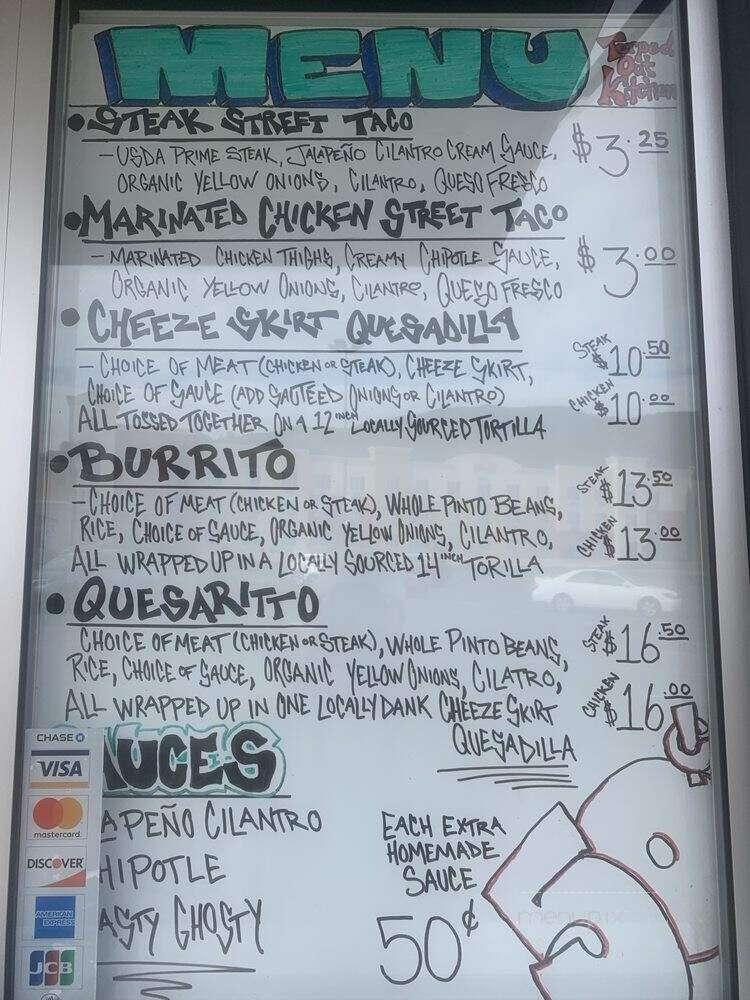 MENU
Torped Out Kitchen
• STEAK STREET TACO
- USDA PRIME STEAK, JALAPEÑO CILANTRO CREAM SAUCE, $3.25
ORGANIC YELLOW ONIONS, CILANTRO, QUESO FRESCO
• MARINATED CHICKEN STREET TACO
- MARINATED CHICKEN THIGHS, CREAMY CHIPOTLE SAUCE, $3.00
ORGANIC YELLOW ONIONS, CILANTRO, QUESO FRESCO
• CHEEZE SKIRT QUESADILLA
- CHOICE OF MEAT (CHICKEN OR STEAK), CHEEZE SKIRT, STEAK $10.50
CHOICE OF SAUCE (ADD SAUTEED ONIONS OR CILANTRO) CHICKEN $10.00
ALL TOSSED TOGETHER ON A 12 INCH LOCALLY SOURCED TORTILLA
• BURRITO
- CHOICE OF MEAT (CHICKEN OR STEAK), WHOLE PINTO BEANS, STEAK $13.50
RICE, CHOICE OF SAUCE, ORGANIC YELLOW ONIONS, CILANTRO, CHICKEN $13.00
ALL WRAPPED UP IN A LOCALLY SOURCED 14 INCH TORILLA
• QUESARITTO
CHOICE OF MEAT (CHICKEN OR STEAK), WHOLE PINTO BEANS, STEAK $16.50
RICE, CHOICE OF SAUCE, ORGANIC YELLOW ONIONS, CILATRO, CHICKEN $16.00
ALL WRAPPED UP IN ONE LOCALLY DANK CHEEZE SKIRT
QUESADILLA
AUCES
APEÑO CILANTRO
HIPOTLE
ASTY GHOSTY
EACH EXTRA
HOMEMADE
SAUCE
50¢
CHASE
VISA
mastercard
DISCOVER
AMERICAN
EXPRESS
JCB